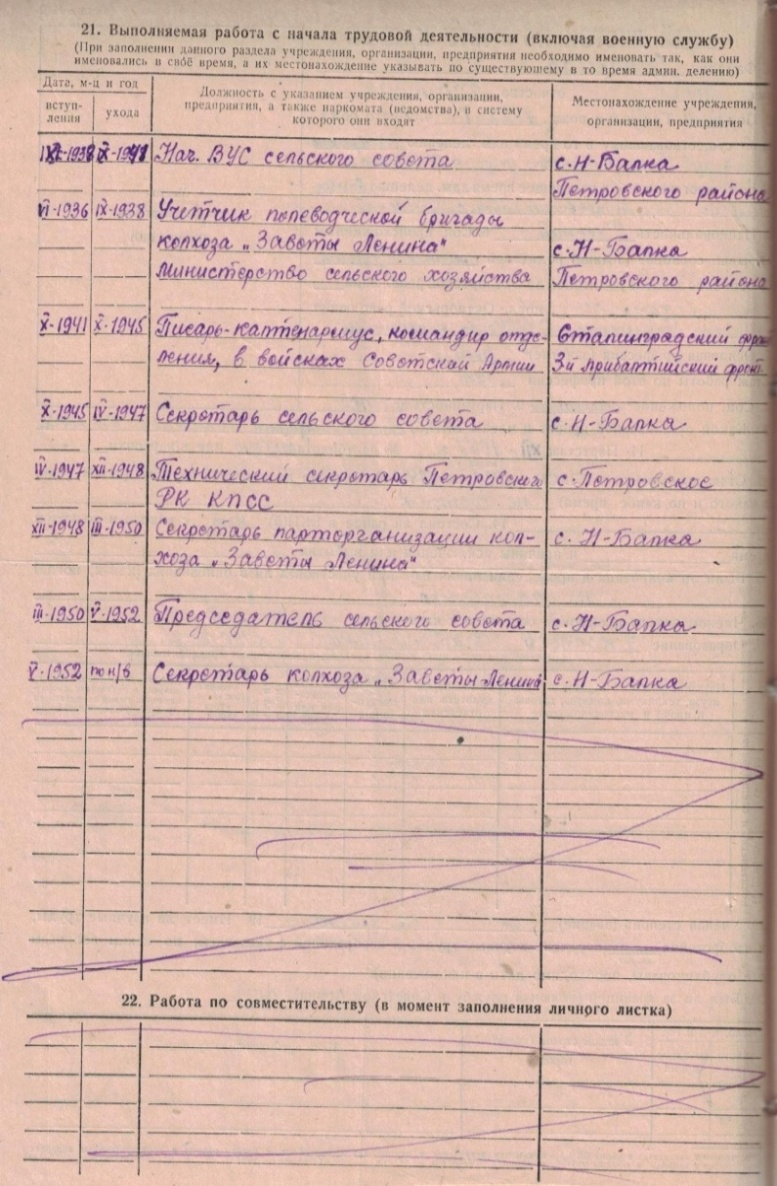 21. Выполняемая работа с начала трудовой деятельности (включая военную службу)
(При заполнении данного раздела учреждения, организации, предприятия необходимо именовать так, как они
именовались в своё время, а их местонахождение указывать по существующему в то время админ. делению)
Дата, м-ц и год
вступ-
ления
ухода
Должность с указанием учреждения, организации,
предприятия, а также наркомата (ведомства), в систему
которого они входят
Местонахождение учреждения,
организации, предприятия
IX-1938 X-1941 Нач. ВУС сельского совета с. Н-Балка
Петровского района
VI-1936 IX-1938 Учетчик полеводческой бригады
колхоза „Заветы Ленина" с. Н-Балка
Министерство сельского хозяйства Петровского района
X-1941 X-1945 Писарь-каптенармус, командир отде- Сталинградский
ления, в войсках Советской Армии 3й прибалтийский фронт
X-1945 IV-1947 Секретарь сельского совета с. Н-Балка
IV-1947 XII-1948 Технический секретарь Петровского с. Петровское
РК КПСС
XII-1948 III-1950 Секретарь парторганизации кол- с. Н-Балка
хоза „Заветы Ленина"
III-1950 V-1952 Председатель сельского совета с. Н-Балка
V-1952 по н/в Секретарь колхоза „Заветы Ленина с. Н-Балка
22. Работа по совместительству (в момент заполнения личного листка)